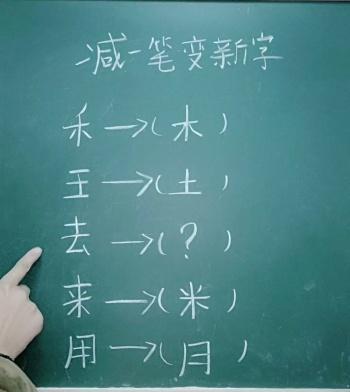 减一笔变新字
禾→(木)
王→(土)
去→(?)
来→(米)
用→(月)